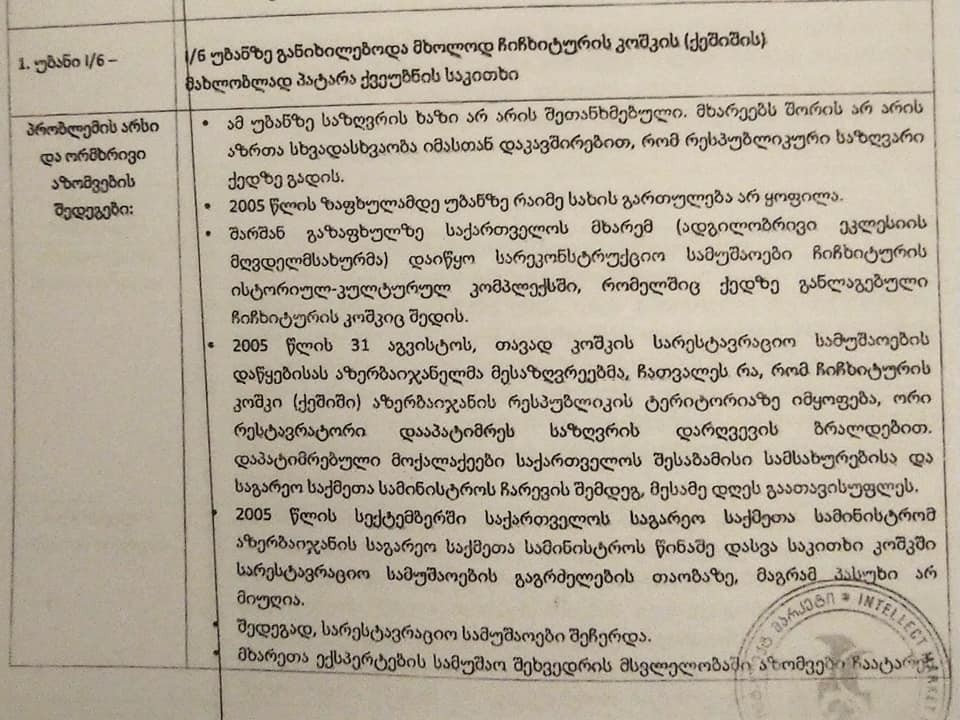 1. უბანი I/6 –
I/6 უბანზე განიხილებოდა მხოლოდ ჩიჩხიტურის კოშკის (ქეშიშის)
მახლობლად პატარა ქვეუბნის საკითხი
პრობლემის არსი
და ორმხრივი
აზომვების
შედეგები:
• ამ უბანზე საზღვრის ხაზი არ არის შეთანხმებული. მხარეებს შორის არ არის
აზრთა სხვადასხვაობა იმასთან დაკავშირებით, რომ რესპუბლიკური საზღვარი
ქედზე გადის.
• 2005 წლის ზაფხულამდე უბანზე რაიმე სახის გართულება არ ყოფილა.
• შარშან გაზაფხულზე საქართველოს მხარემ (ადგილობრივი ეკლესიის
მღვდელმსახურმა) დაიწყო სარეკონსტრუქციო სამუშაოები ჩიჩხიტურის
ისტორიულ-კულტურულ კომპლექსში, რომელშიც ქედზე განლაგებული
ჩიჩხიტურის კოშკიც შედის.
• 2005 წლის 31 აგვისტოს, თავად კოშკის სარესტავრაციო სამუშაოების
დაწყებისას აზერბაიჯანელმა მესაზღვრეებმა, ჩათვალეს რა, რომ ჩიჩხიტურის
კოშკი (ქეშიში) აზერბაიჯანის რესპუბლიკის ტერიტორიაზე იმყოფება, ორი
რესტავრატორი დააპატიმრეს საზღვრის დარღვევის ბრალდებით.
დაპატიმრებული მოქალაქეები საქართველოს შესაბამისი სამსახურებისა და
საგარეო საქმეთა სამინისტროს ჩარევის შემდეგ, მესამე დღეს გაათავისუფლეს.
• 2005 წლის სექტემბერში საქართველოს საგარეო საქმეთა სამინისტრომ
აზერბაიჯანის საგარეო საქმეთა სამინისტროს წინაშე დასვა საკითხი კოშკში
სარესტავრაციო სამუშაოების გაგრძელების თაობაზე, მაგრამ პასუხი არ
მიუღია.
• შედეგად, სარესტავრაციო სამუშაოები შეჩერდა.
• მხარეთა ექსპერტების სამუშაო შეხვედრის მსვლელობაში აზომვები
მარკეტი * INTELLECT MARKET